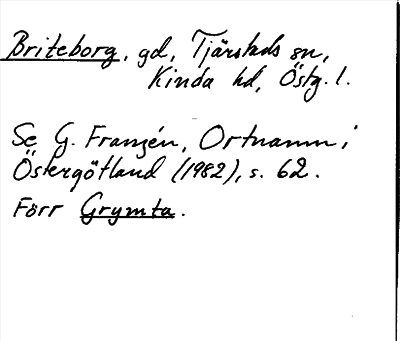 Briteborg, gd, Tjärstads sn,
Kinda hd, Östg. l.
Se G. Franzén, Ortnamn i
Östergötland (1982), s. 62.
Förr Grymta.